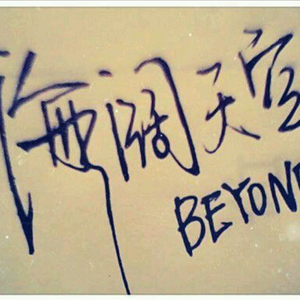 海阔天空
BEYOND